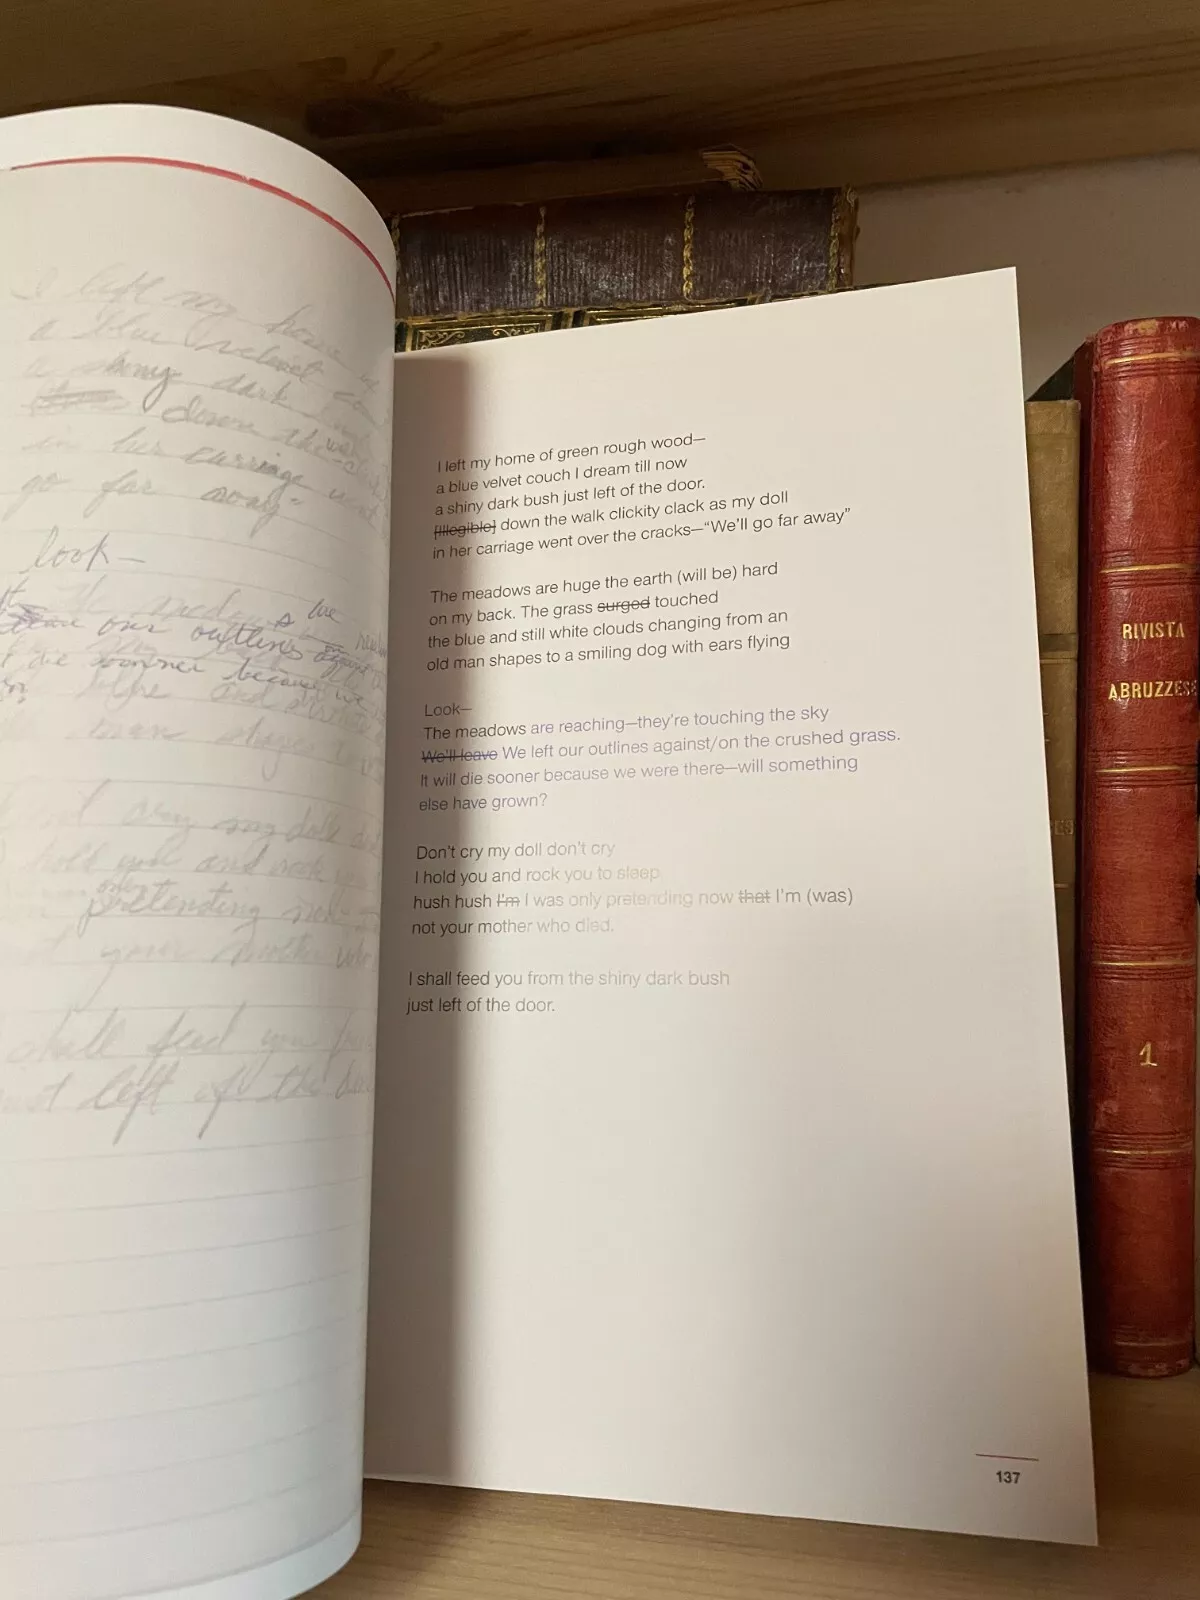 I left my home
a blue velvet
a shiny dark
down the
in her carriage went
go far away-
look-
our outlines
die sooner because we
blue and
cry my doll
hold you and rock you
only
pretending now
your mother who
shall feed you
just left of the
I left my home of green rough wood—
a blue velvet couch I dream till now
a shiny dark bush just left of the door.
[Illegible] down the walk clickity clack as my doll
in her carriage went over the cracks—“We’ll go far away”
The meadows are huge the earth (will be) hard
on my back. The grass surged touched
the blue and still white clouds changing from an
old man shapes to a smiling dog with ears flying
Look—
The meadows are reaching—they’re touching the sky
We’ll leave We left our outlines against/on the crushed grass.
It will die sooner because we were there—will something
else have grown?
Don’t cry my doll don’t cry
I hold you and rock you to sleep
hush hush I’m I was only pretending now that I’m (was)
not your mother who died.
I shall feed you from the shiny dark bush
just left of the door.
137
RIVISTA
ABRUZZESE
1